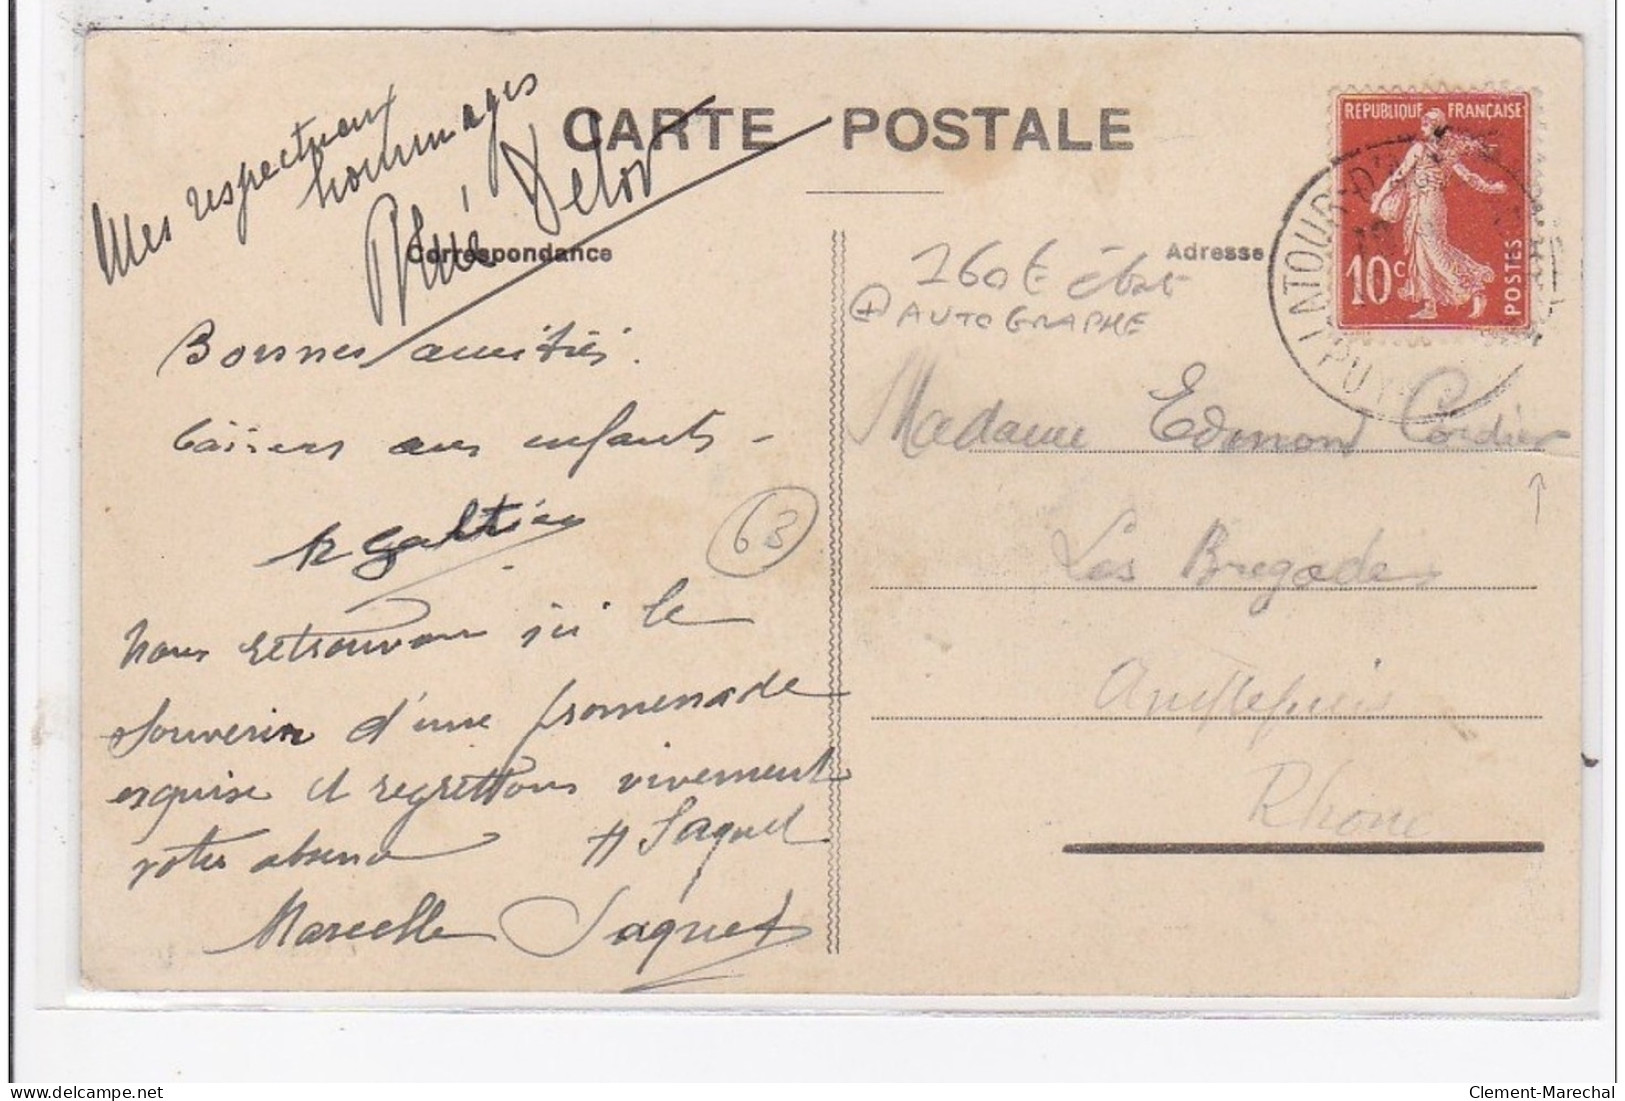 CARTE POSTALE
Mes respectueux
hommages
René Delor
Correspondance
Bonnes amitiés.
baisers aux enfants -
Galtier
63
Nous retrouvons ici le
souvenir d'une promenade
exquise et regrettons vivement
votre absence
H Jaquet
Marcelle Jaquet
REPUBLIQUE FRANÇAISE
10c
POSTES
LATOUR-D'
PUY
Adresse
160€ état
+ AUTOGRAPHE
Madame Edmond Cordier
Les Bregades
Amplepuis
Rhone
Clement-Marechal